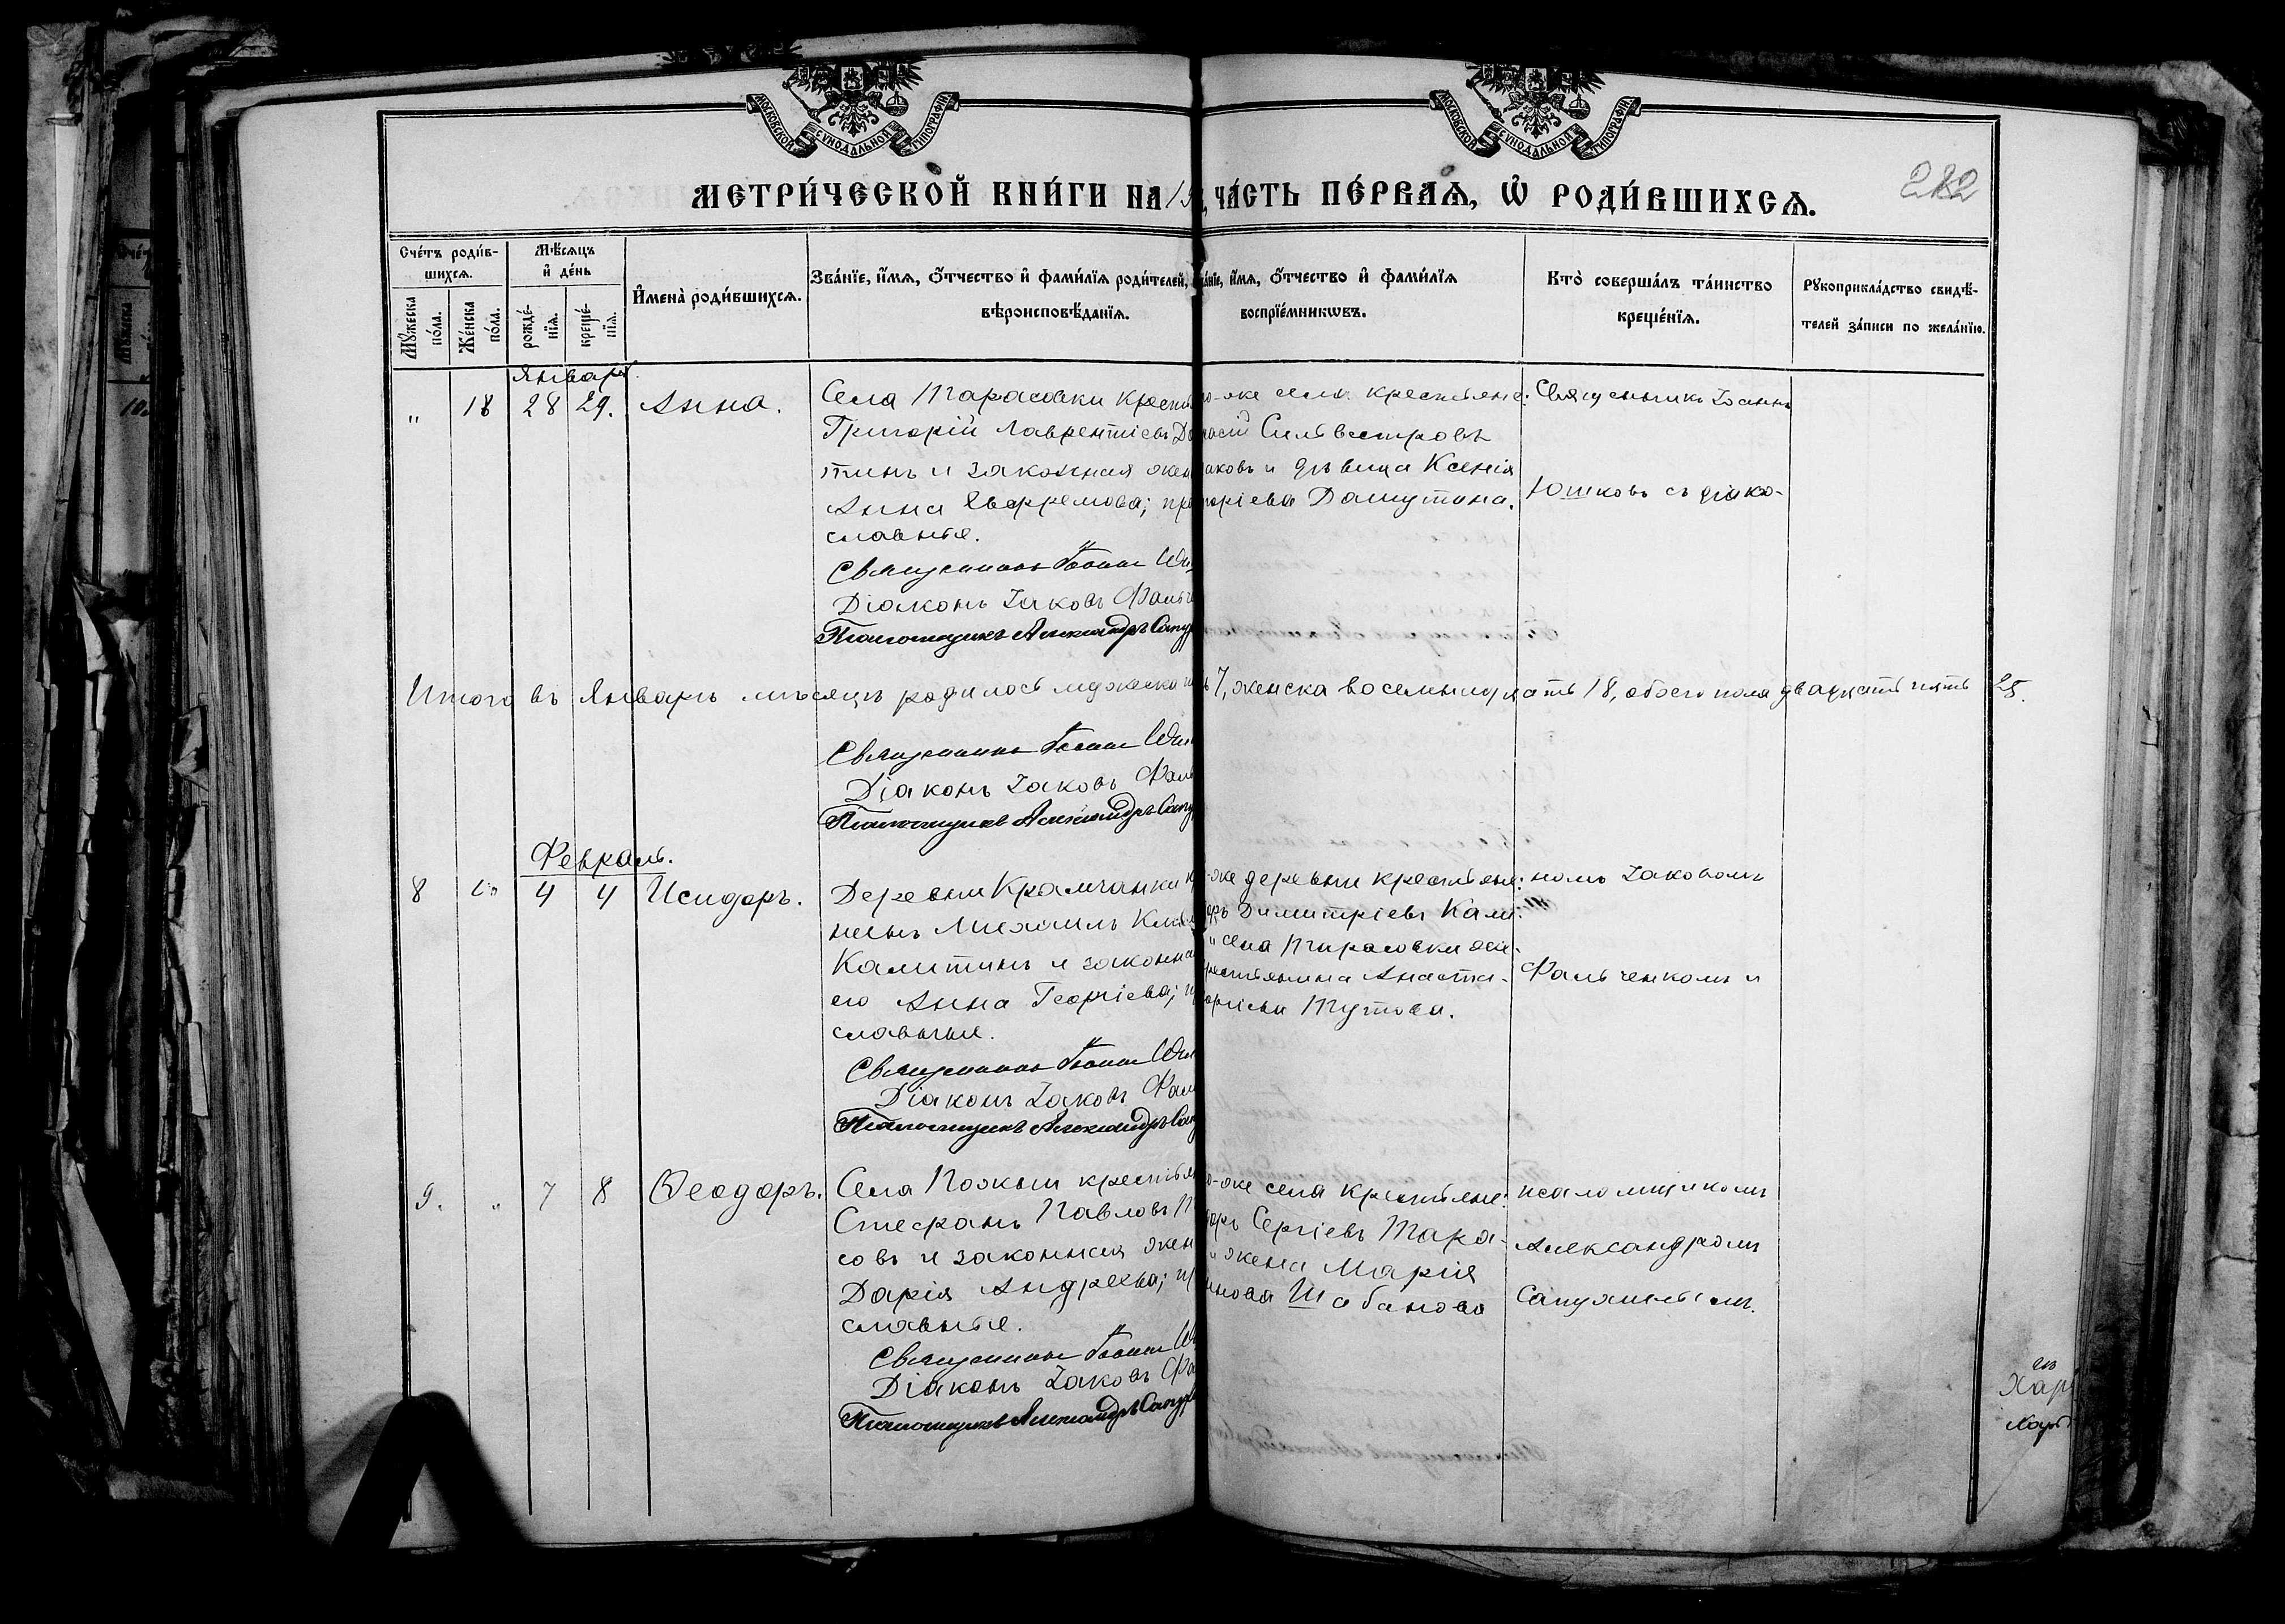 МОСКОВСКОЙ СѴНОДАЛЬНОЙ ТИПОГРАФІИ
МОСКОВСКОЙ СѴНОДАЛЬНОЙ ТИПОГРАФІИ
МЕТРИ́ЧЕСКОЙ КНИ́ГИ НА 19
ЧА́СТЬ ПЕ́РВАѦ, Ѽ РОДИ́ВШИХСѦ.
282
Сче́тъ роди́в-
шихсѧ.
Мꙋжеска по́ла.
Же́нска по́ла.
Мѣ́сѧцъ
и҆ де́нь
рожде́-
нїѧ.
креще́-
нїѧ.
И҆мена̀ роди́вшихсѧ.
Зва́нїе, и҆́мѧ, ѻ҆́тчество и҆ фами́лїѧ роди́телей,
вѣроисповѣ́данїѧ.
и҆́мѧ, ѻ҆́тчество и҆ фами́лїѧ
воспрїе́мникѡвъ.
Кто̀ соверша́лъ та́инство
креще́нїѧ.
Рꙋкоприкла́дство свидѣ́-
телей за́писи по жела́нїю.
Январь
" 18 28 29. Анна.
Села Тарасовки крестья
Григорій Лаврентіевъ Да
тинъ и законная жен
Анна Ефремова; пра
славные.
Священникъ Іоаннъ Юш
Діаконъ Іаковъ Фальч
Псаломщикъ Александръ Сапух
го-же села крестьяне:
Сильвестровъ
аковъ и дѣвица Ксенія
горіева Дашутина.
Священникъ Іоаннъ
Юшковъ съ діако-
Итого въ Январѣ мѣсяцѣ родилось мужеска 7, женска восемнадцать 18, обоего пола двадцать пять 25.
Священникъ Іоаннъ Юш
Діаконъ Іаковъ Фаль
Псаломщикъ Александръ Сапу
Февраль.
8 " 4 4 Исидоръ.
Деревни Крамчанки
Михаилъ
Калитинъ и законна
его Анна Георгіева; п
славные.
Священникъ Іоаннъ Юш
Діаконъ Іаковъ Фал
Псаломщикъ Александръ Сап
-же деревни крестьяне:
Димитріевъ Кали-
и села Тарасовки
крестьянина Анаста-
Тутова.
номъ Іаковомъ
Фальченкомъ и
9. " 7 8 Ѳеодоръ.
Села Пожни крестья
Стефанъ Павловъ
совъ и законная жен
Дарія Андреева; п
славные.
Священникъ Іоаннъ Ю
Діаконъ Іаковъ Фа
Псаломщикъ Александръ Сапух
го-же села крестьяне:
Сергіевъ Тара-
и жена Марія
Шабанова
псаломщикомъ
Александромъ
Хар
Харь